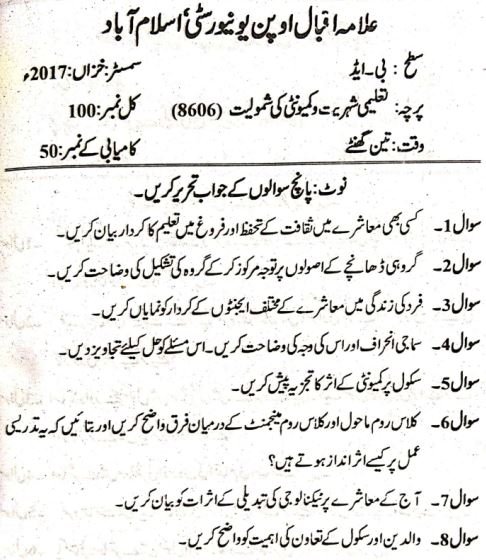 علامہ اقبال اوپن یونیورسٹی، اسلام آباد
سطح : بی۔ایڈ سمسٹر: خزاں: 2017ء
پرچہ: تعلیمی شہریت و کمیونٹی کی شمولیت (8606) کل نمبر: 100
وقت: تین گھنٹے کامیابی کے نمبر: 50
نوٹ: پانچ سوالوں کے جواب تحریر کریں۔
سوال1۔ کسی بھی معاشرے میں ثقافت کے تحفظ اور فروغ میں تعلیم کا کردار بیان کریں۔
سوال2۔ گروہی ڈھانچے کے اصولوں پر توجہ مرکوز کر کے گروہ کی تشکیل کی وضاحت کریں۔
سوال3۔ فرد کی زندگی میں معاشرے کے مختلف ایجنٹوں کے کردار کو نمایاں کریں۔
سوال4۔ سماجی انحراف اور اس کی وجہ کی وضاحت کریں۔ اس مسئلے کو حل کیلئے تجاویز دیں۔
سوال5۔ سکول پر کمیونٹی کے اثر کا تجزیہ پیش کریں۔
سوال6۔ کلاس روم ماحول اور کلاس روم مینجمنٹ کے درمیان فرق واضح کریں اور بتائیں کہ یہ تدریسی
عمل پر کیسے اثر انداز ہوتے ہیں؟
سوال7۔ آج کے معاشرے پر ٹیکنالوجی کی تبدیلی کے اثرات کو بیان کریں۔
سوال8۔ والدین اور سکول کے تعاون کی اہمیت کو واضح کریں۔